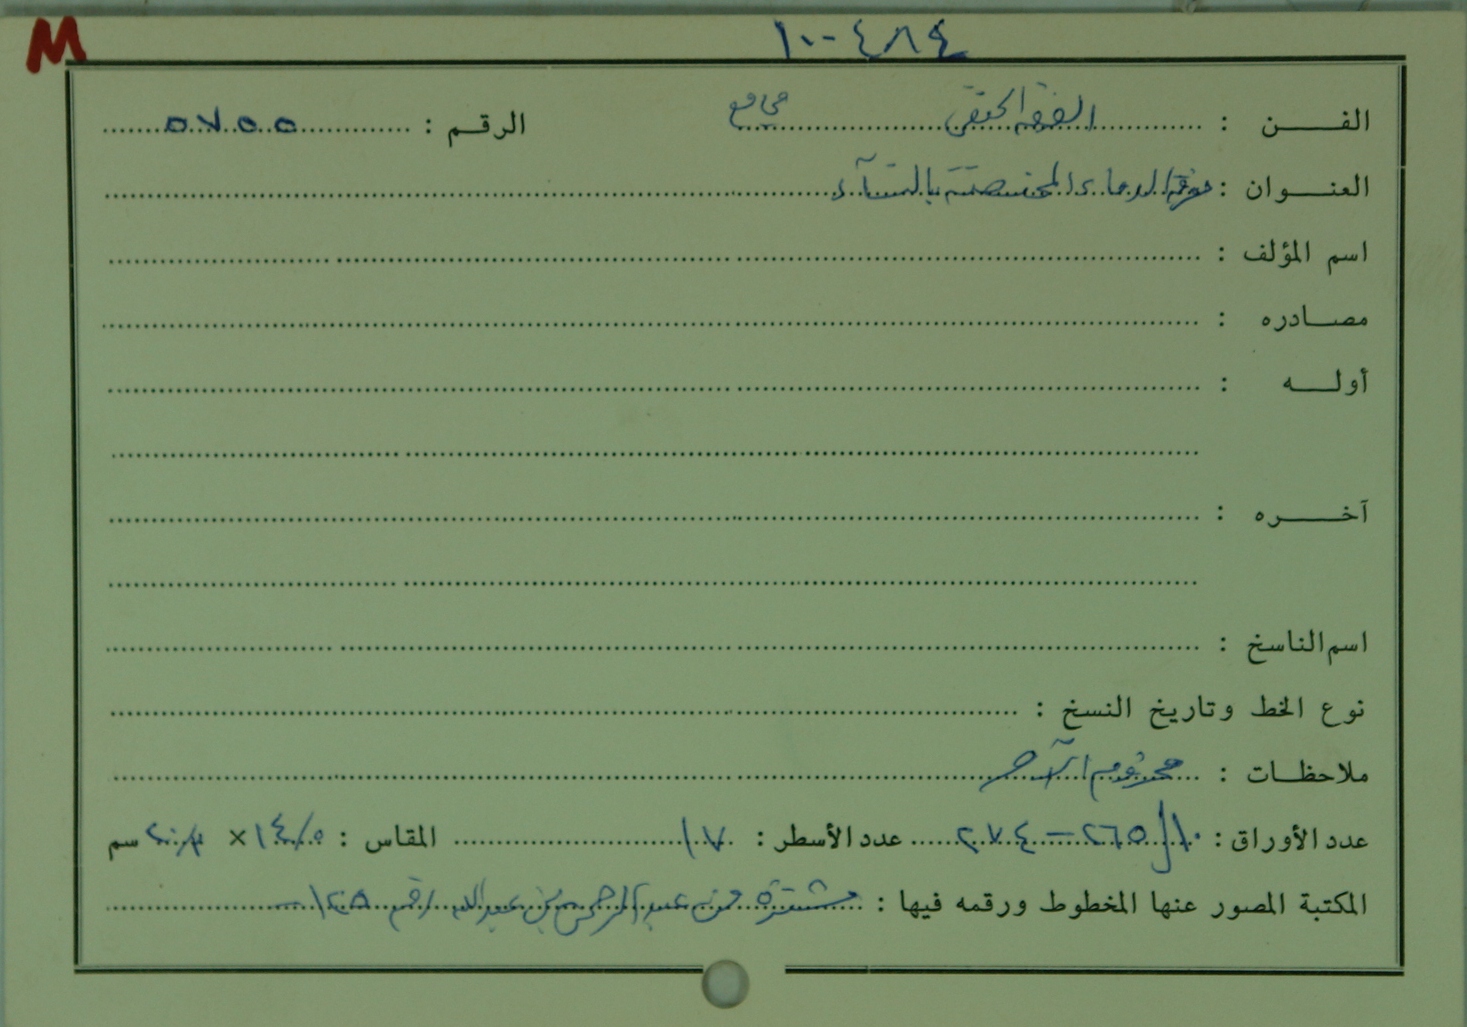 M
١٠٠٤٨٤
الفن : الفقه الحنفي مجاميع الرقم : ٥٧٥٥
العنوان : معرفة الدماء المختصة بالنسآء
اسم المؤلف :
مصادره :
أوله :
آخره :
اسم الناسخ :
نوع الخط وتاريخ النسخ :
ملاحظات : مخروم الآخر
عدد الأوراق : ١٠ق ٢٦٥-٢٧٤ عدد الأسطر : ١٧ المقاس : × سم
المكتبة المصور عنها المخطوط ورقمه فيها : مشتراة من عبد الرحمن بن عبدالله رقم ١٢٥